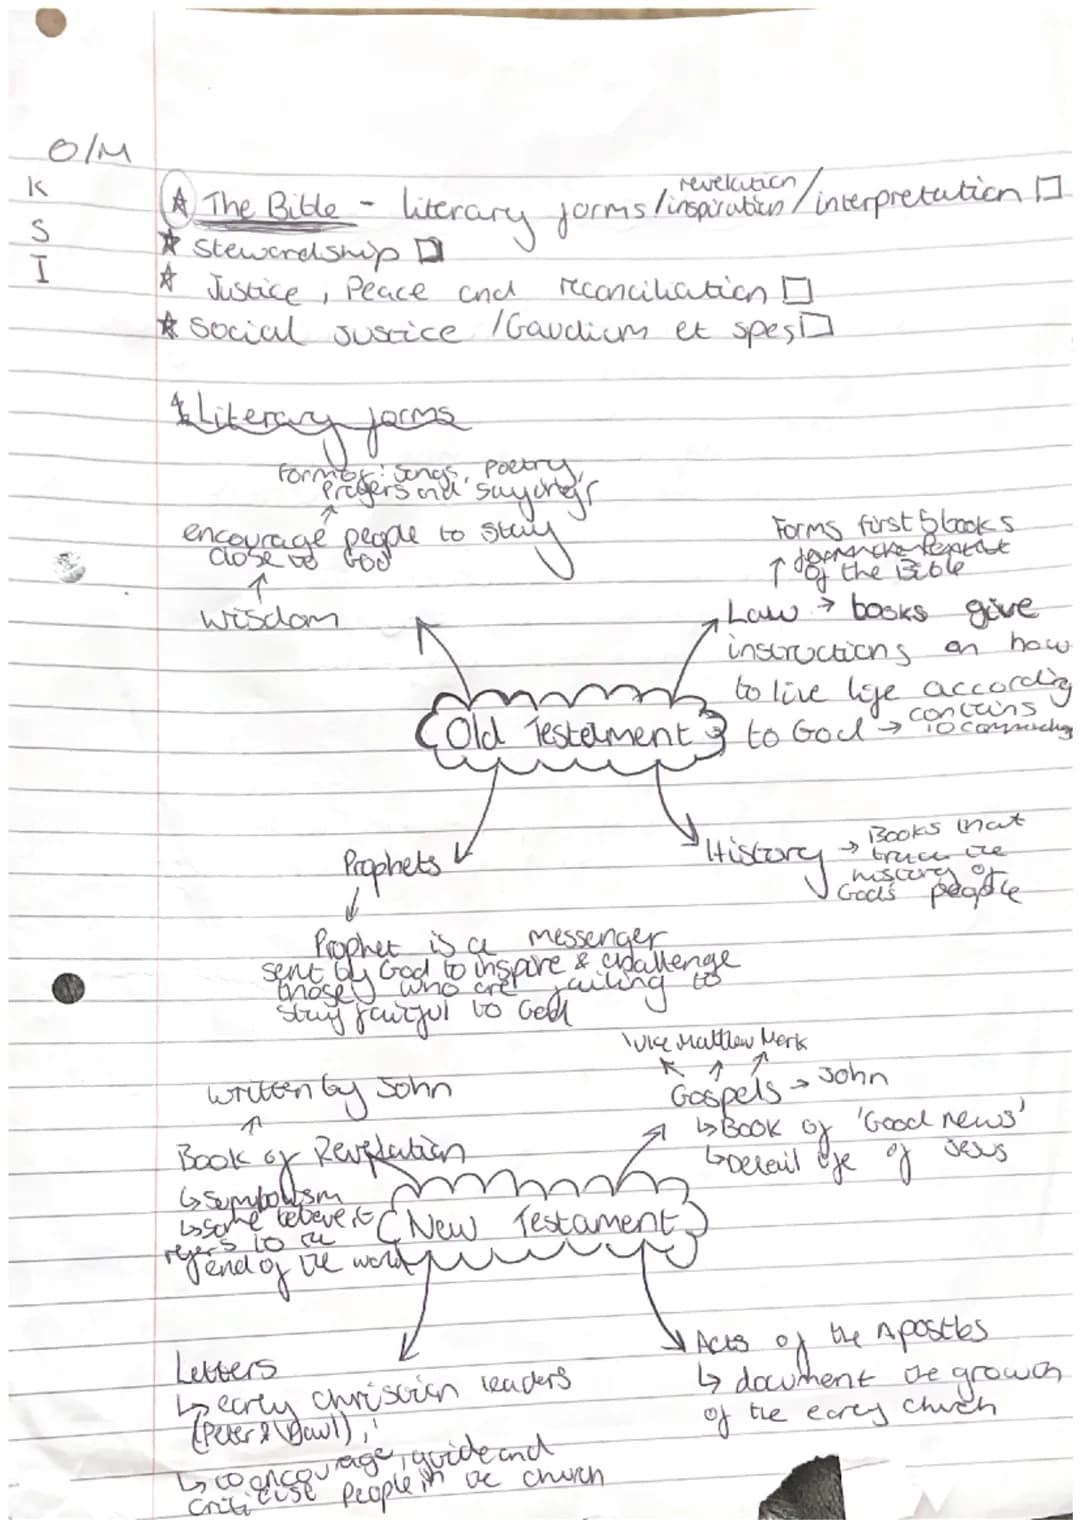 O/M
K
S
I
The Bible - literary forms / revelation / inspiration / interpretation
Stewardship
Justice, Peace and reconciliation
Social justice / Gaudium et spes
Literary forms
Form of: songs, poetry,
Prayers and sayings
encourage people to stay
close to God
Wisdom
Forms first 5 books
of the Bible
Law → books give
instructions on how
to live life according
to God → contains
10
Old Testament
History → Books that
trace the
history of
God's people
Prophets
Prophet is a messenger
sent by God to inspire & challenge
those who are failing to
stay faithful to God
Luke Matthew Mark
Gospels → John
↳ Book of 'Good news'
↳ Detail life of Jesus
written by John
Book of Revelation
↳ symbolism
↳ some believe it
refers to the
end of the world
New Testament
Acts of the Apostles
↳ document the growth
of the early church
Letters
↳ early christian leaders
(Peter & Paul)
↳ to encourage, guide and
criticise people in the church